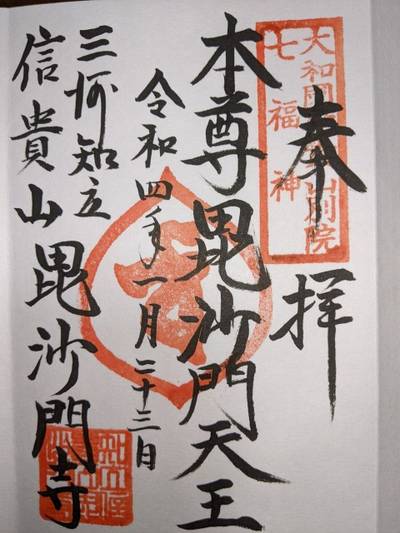 奉拝
大和国
山別院
七福神
本尊毘沙門天王
令和四年一月二十三日
三州知立
信貴山毘沙門寺